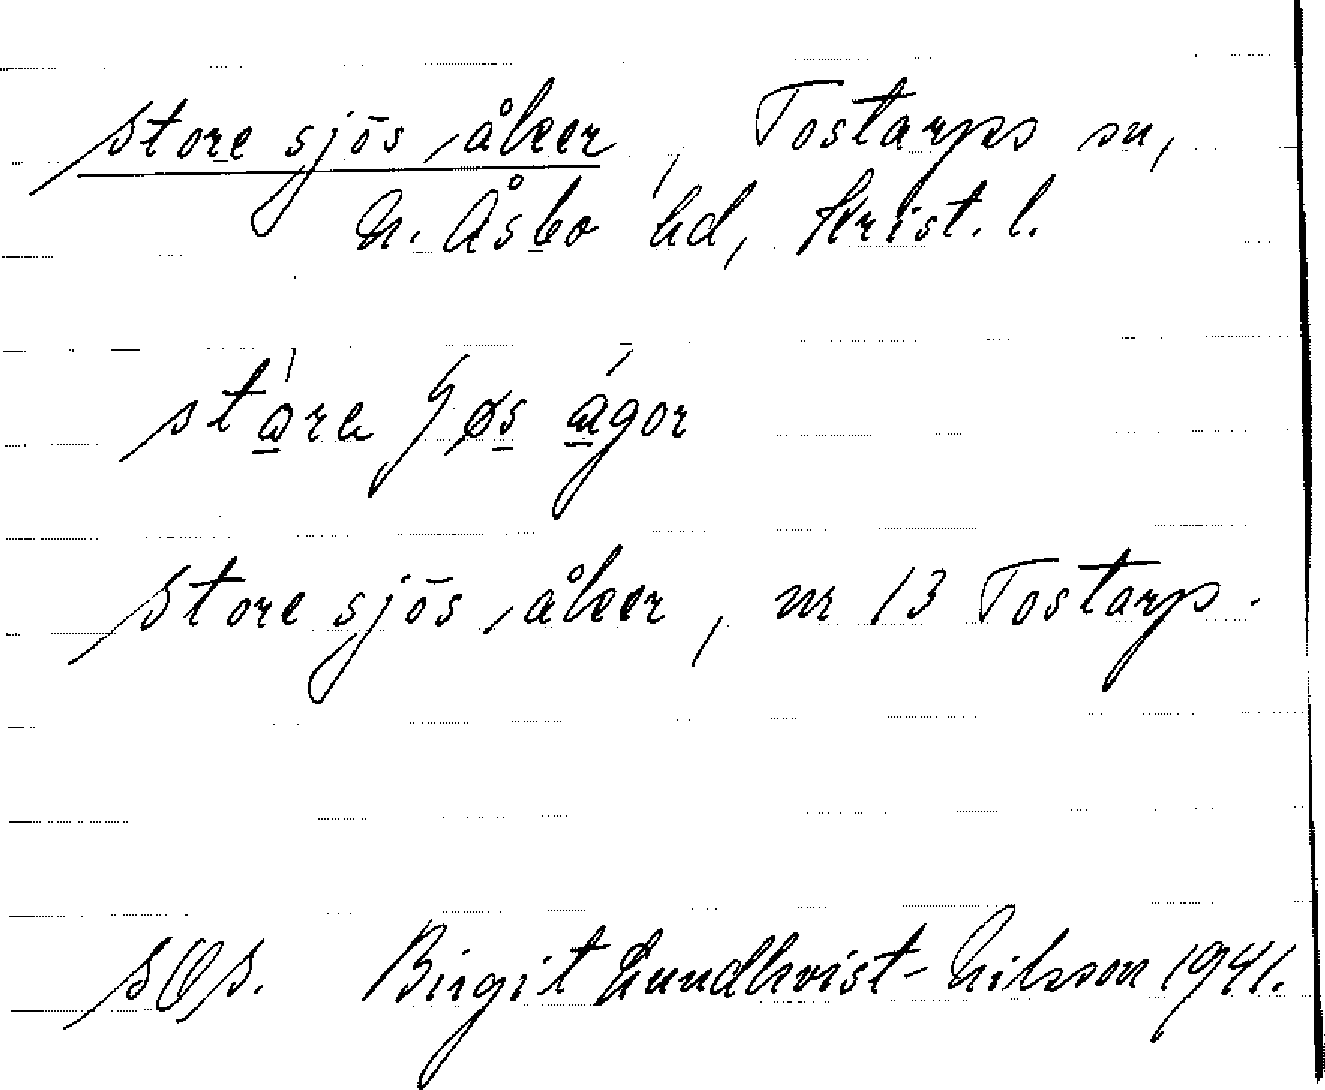 store sjös åker, Tostarps sn,
N. Åsbo hd, Krist. l.
store sjös åker, nr 13 Tostarp.
Birgit Lundkvist-Nilsson 1941.